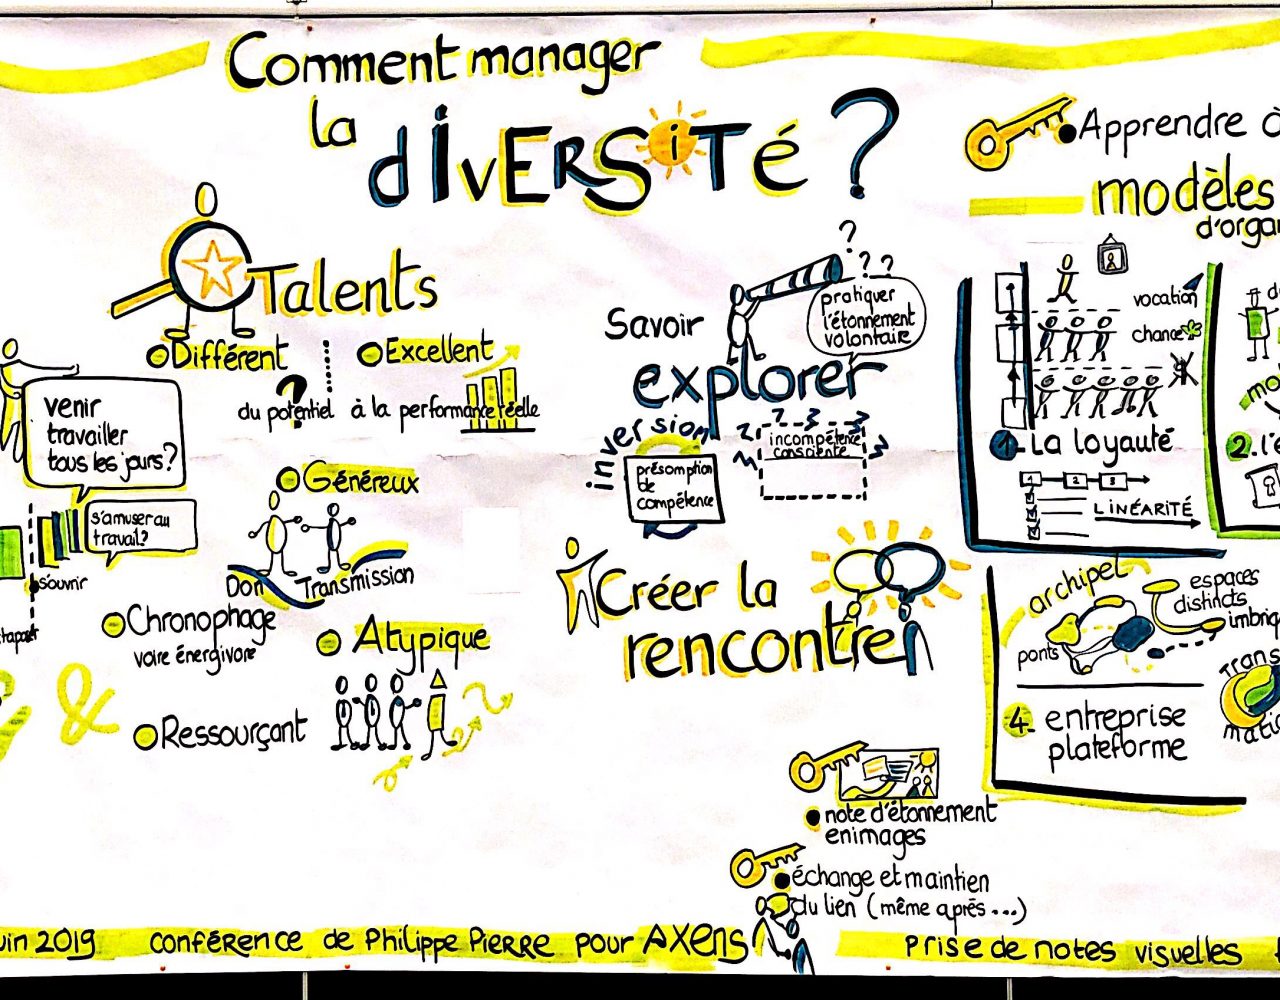 Comment manager
la
diversité ?
Talents
Différent
Excellent
?
du potentiel à la performance réelle
venir
travailler
tous les jours?
s'amuser au
travail?
s'ouvrir
Généreux
Don
Transmission
Chronophage
voire énergivore
Atypique
&
Ressourçant
Savoir
explorer
? ? ?
pratiquer
l'étonnement
volontaire
inversion
présomption
de
compétence
incompétence
consciente
Créer la
rencontre
note d'étonnement
en images
échange et maintien
du lien (même après...)
Apprendre à
modèles
d'orga
vocation
chance
1. La loyauté
1 2 3
LINÉARITÉ
2. l'é
archipel
ponts
espaces
distincts
imbriq
4. entreprise
plateforme
Trans
matic
uin 2019 conférence de Philippe Pierre pour AXENS
Prise de notes visuelles